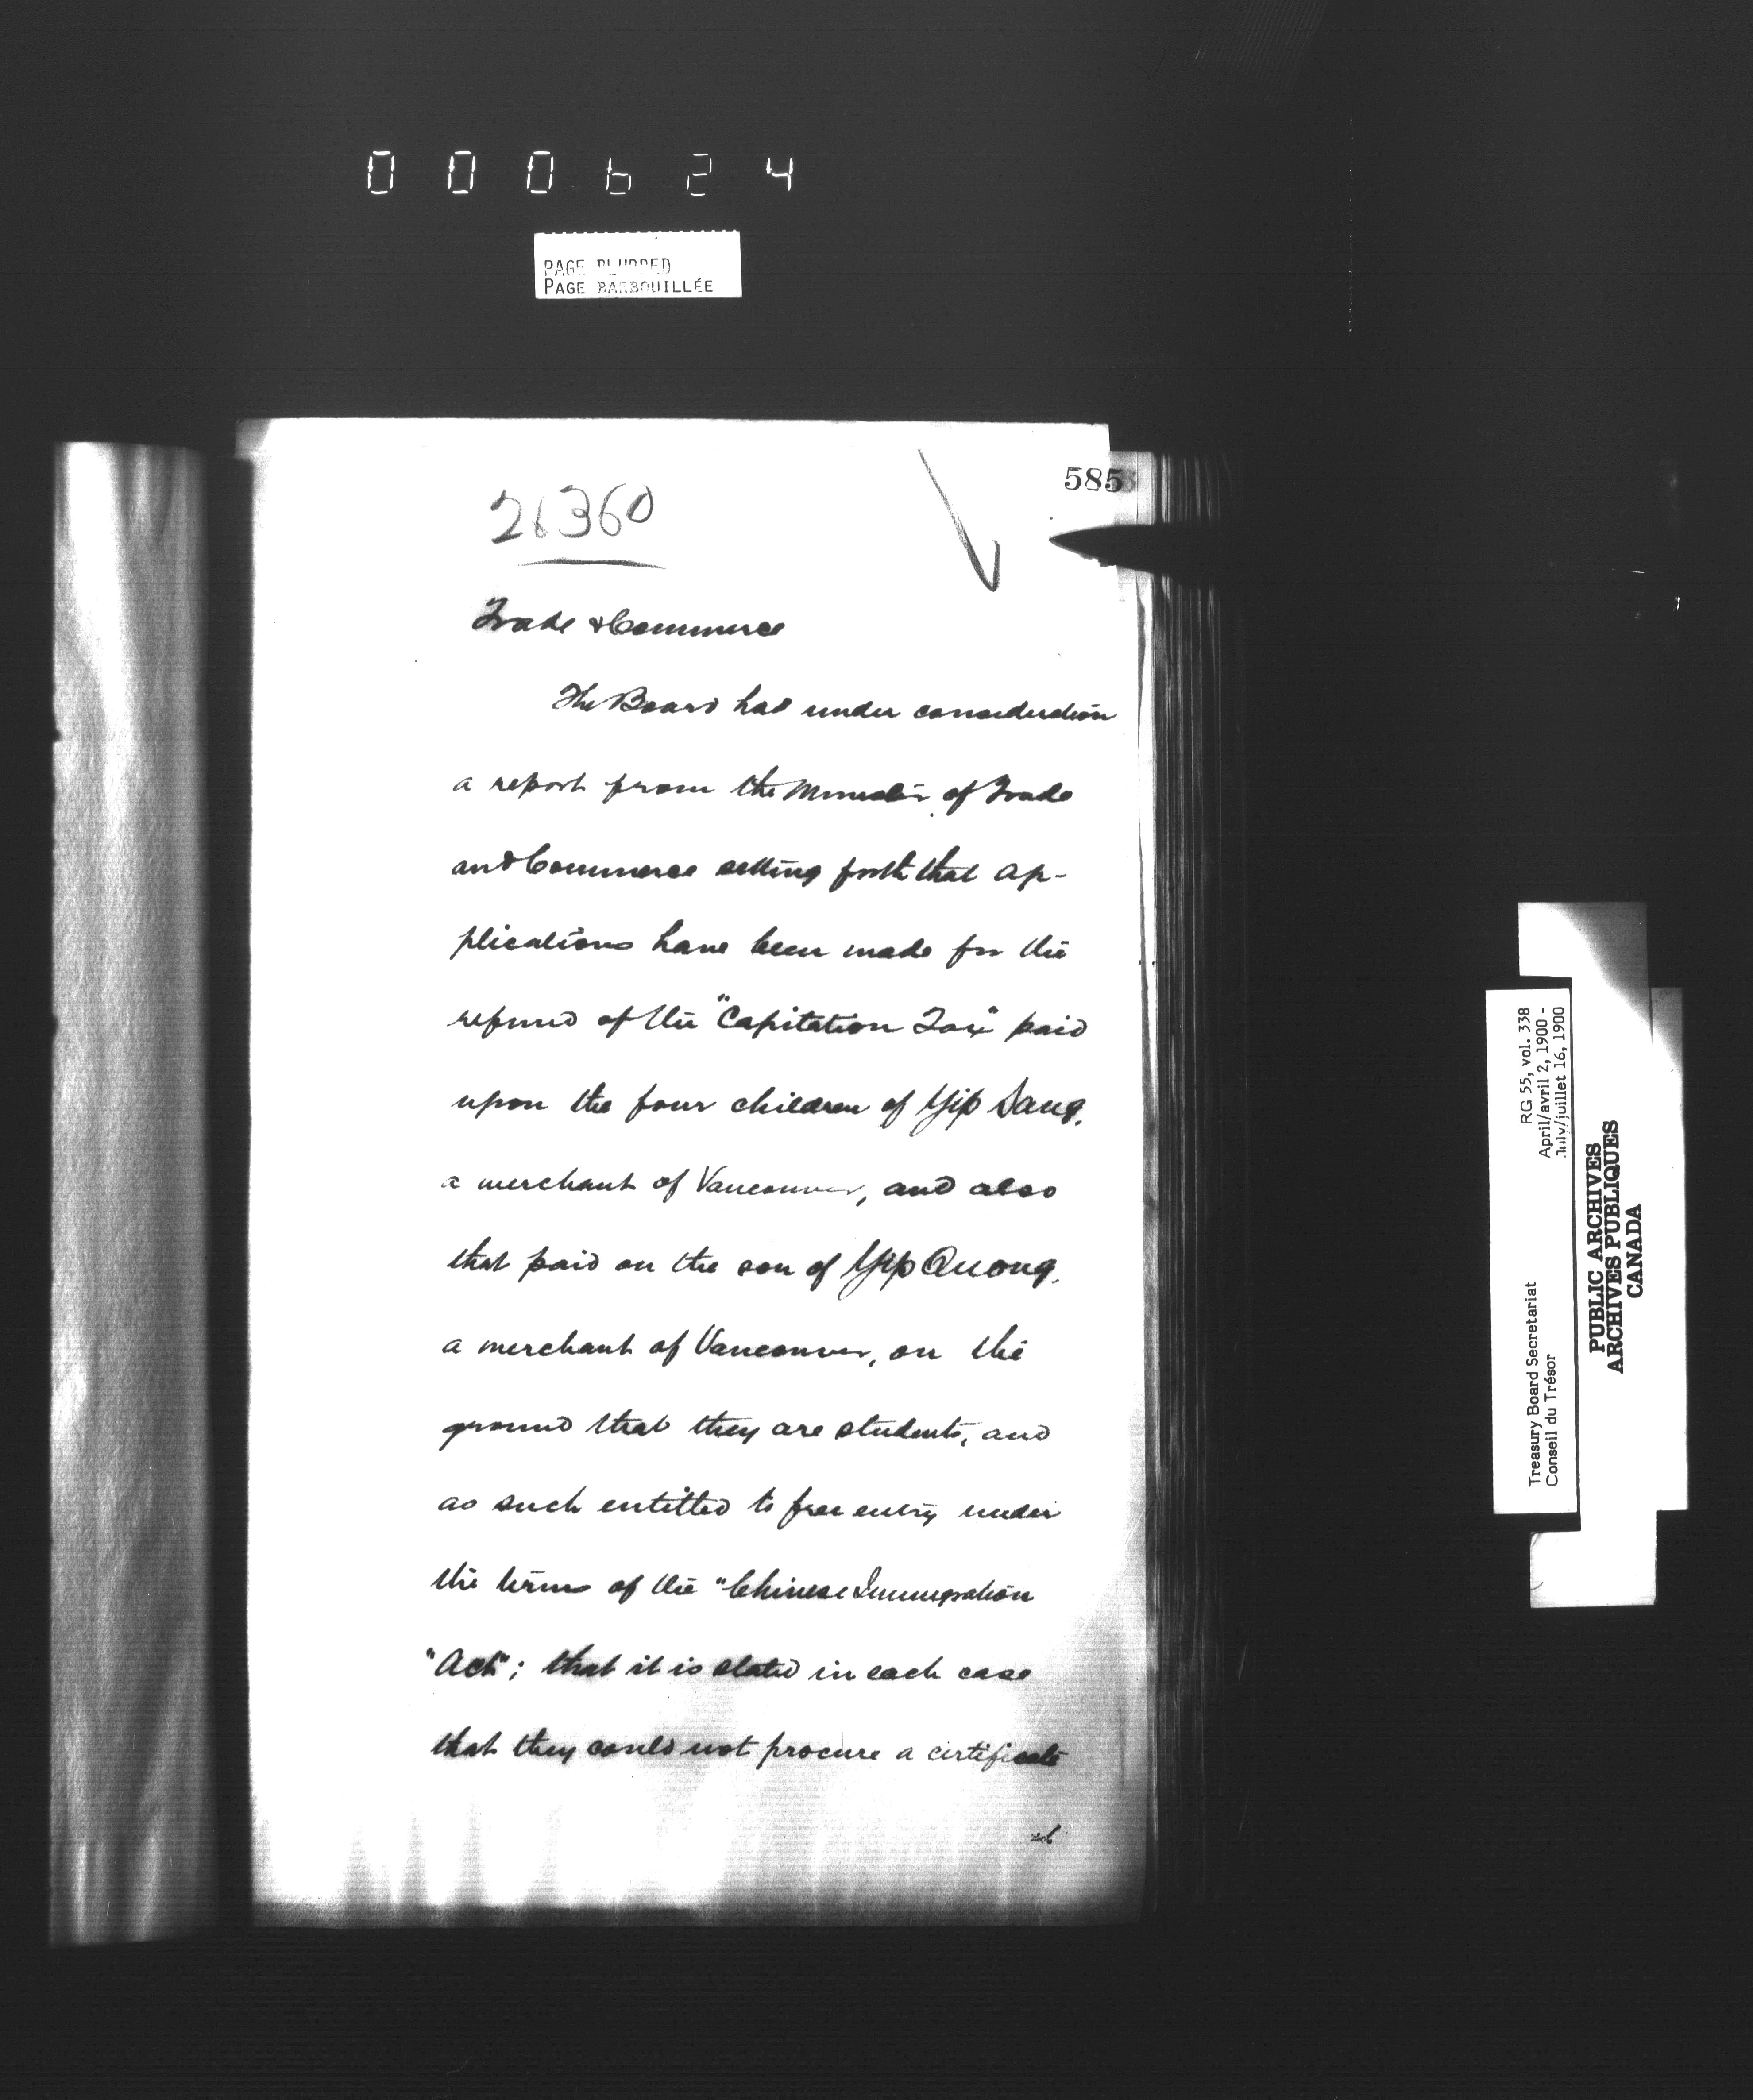 000624
PAGE BLURRED
PAGE BARBOUILLÉE
585
26360
Trade & Commerce
The Board had under consideration
a report from the Minister of Trade
and Commerce setting forth that ap-
plications have been made for the
refund of the "Capitation Tax" paid
upon the four children of Yip Sang,
a merchant of Vancouver, and also
that paid on the son of Yip Quong,
a merchant of Vancouver, on the
ground that they are students, and
as such entitled to free entry under
the terms of the "Chinese Immigration
"Act"; that it is stated in each case
that they could not procure a certificate
Treasury Board Secretariat
Conseil du Trésor
RG 55, vol. 338
April/avril 2, 1900 -
July/juillet 16, 1900
PUBLIC ARCHIVES
ARCHIVES PUBLIQUES
CANADA